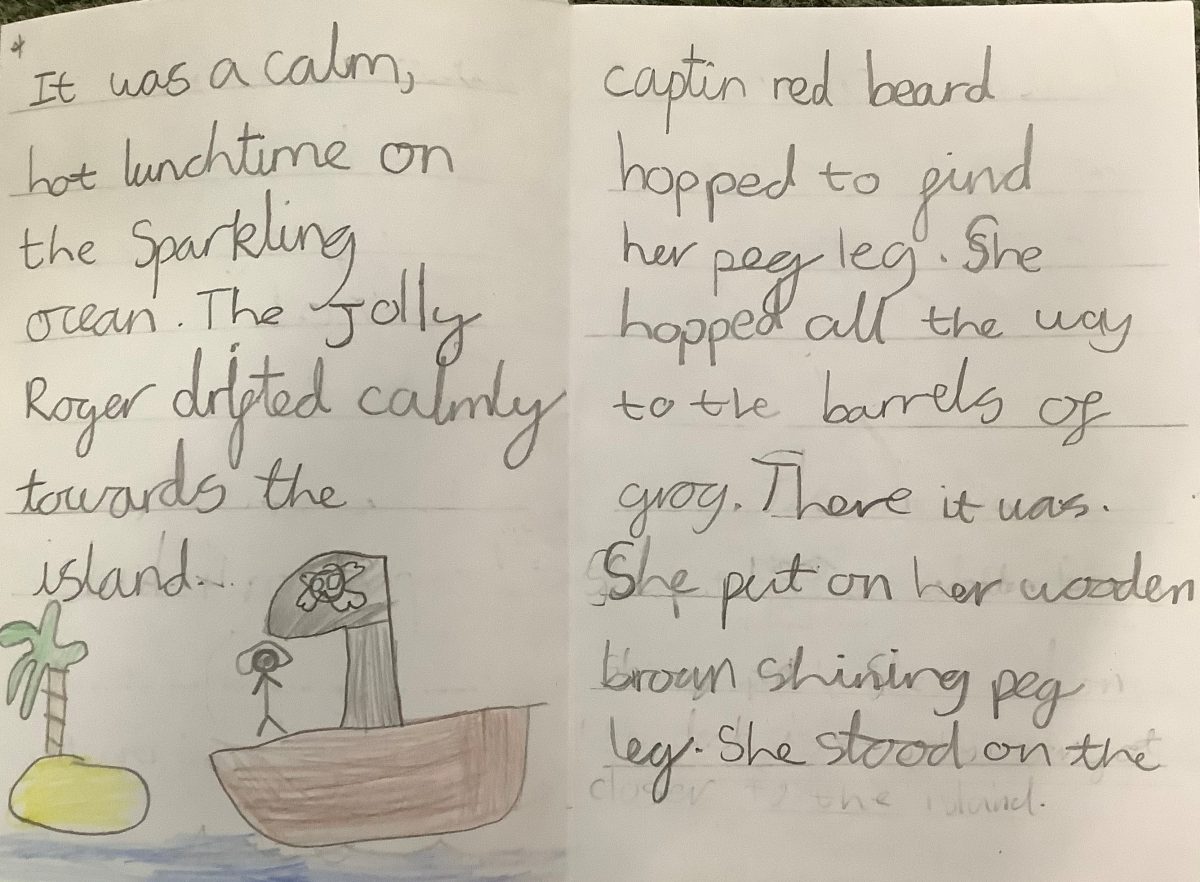 *
It was a calm,
hot lunchtime on
the Sparkling
ocean. The Jolly
Roger drifted calmly
towards the
island...
captin red beard
hopped to find
her peg leg. She
hopped all the way
to the barrels of
grog. There it was.
She put on her wooden
brown shining peg
leg. She stood on the
closer to the island.